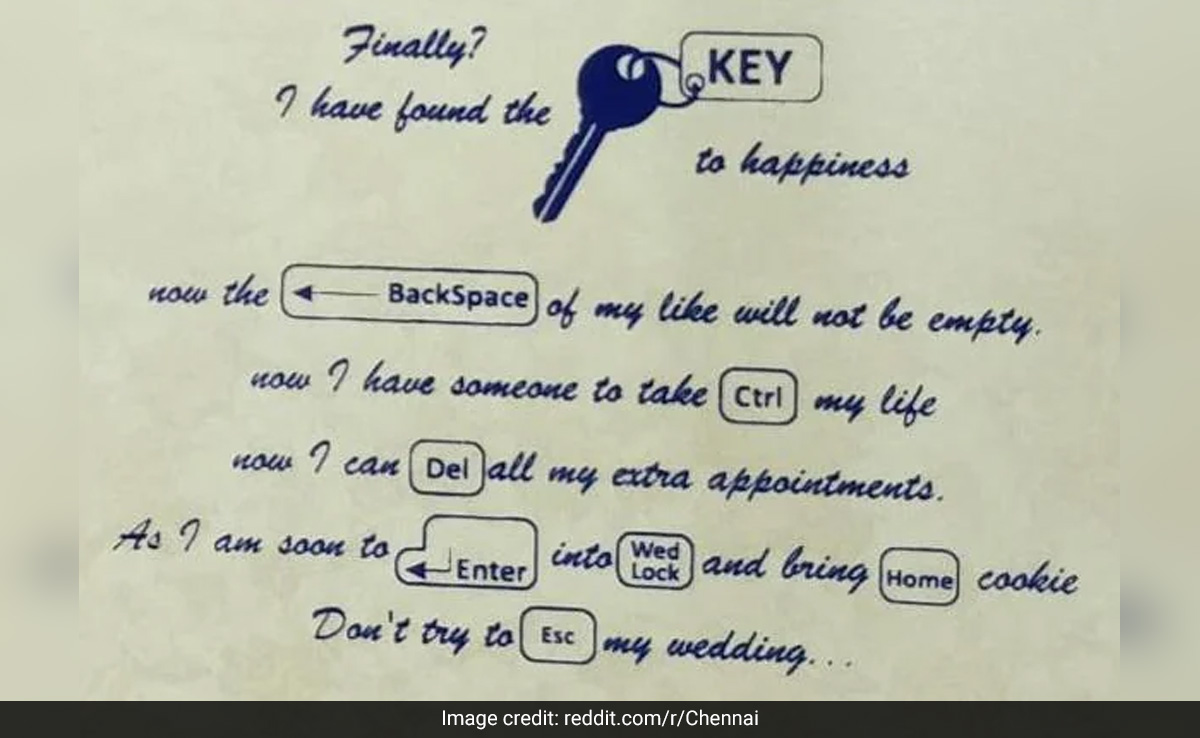 Finally?
I have found the KEY
to happiness
now the BackSpace of my like will not be empty.
now I have someone to take Ctrl my life
now I can Del all my extra appointments.
As I am soon to Enter into Wed Lock and bring Home cookie
Don't try to Esc my wedding...
Image credit: reddit.com/r/Chennai